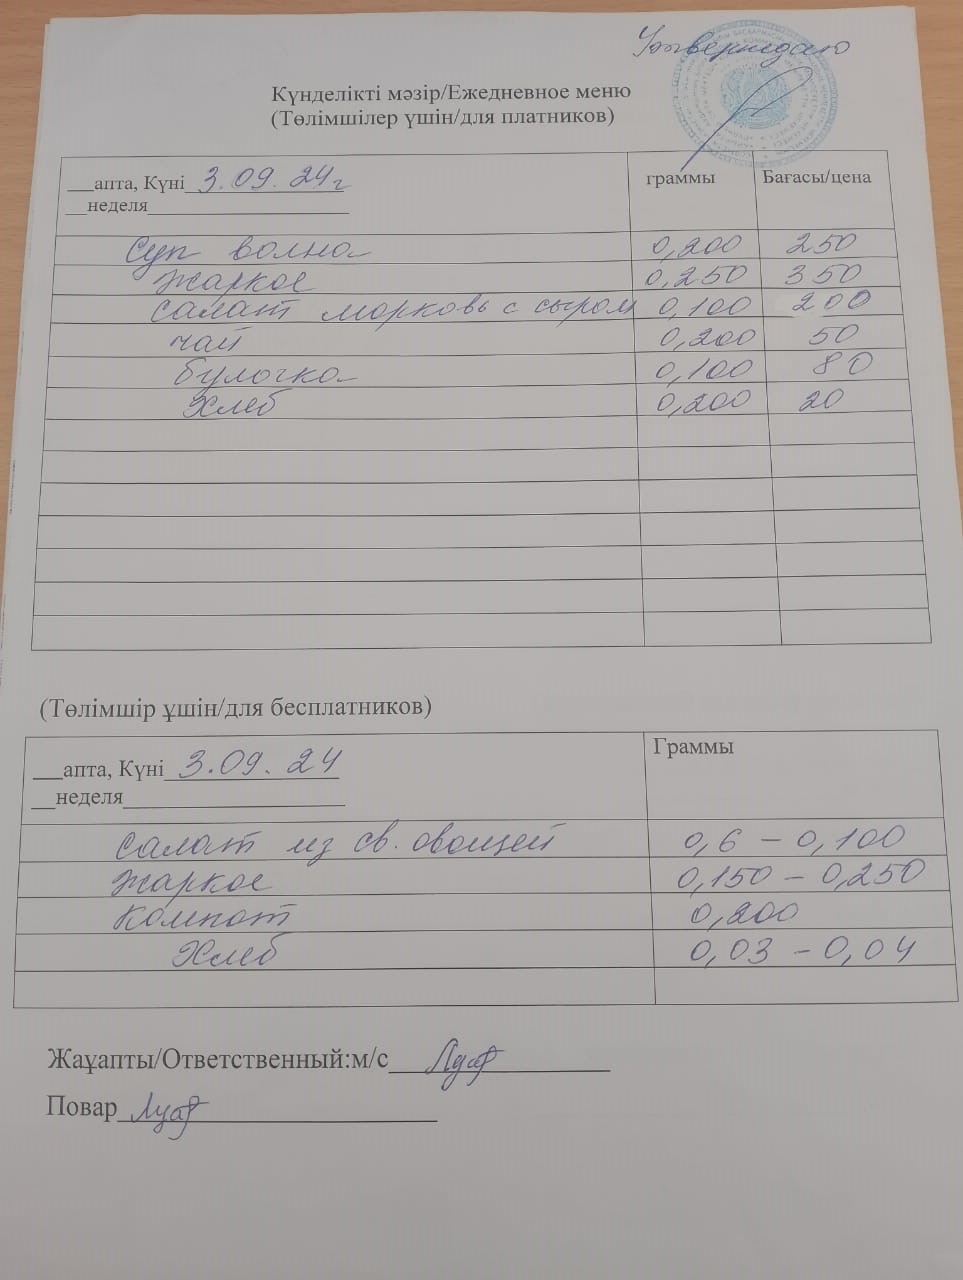 Утверждаю
Күнделікті мәзір/Ежедневное меню
(Төлімшілер үшін/для платников)
___апта, Күні 3.09.24г граммы Бағасы/цена
__неделя
Суп волна 0,200 250
Жаркое 0,250 350
Салат морковь с сыром 0,100 200
чай 0,200 50
булочка 0,100 80
Хлеб 0,200 20
(Төлімшір ұшін/для бесплатников)
___апта, Күні 3.09.24 Граммы
__неделя
Салат из св. овощей 0,6 – 0,100
Жаркое 0,150 – 0,250
Компот 0,200
Хлеб 0,03 – 0,04
Жаұапты/Ответственный:м/с
Повар